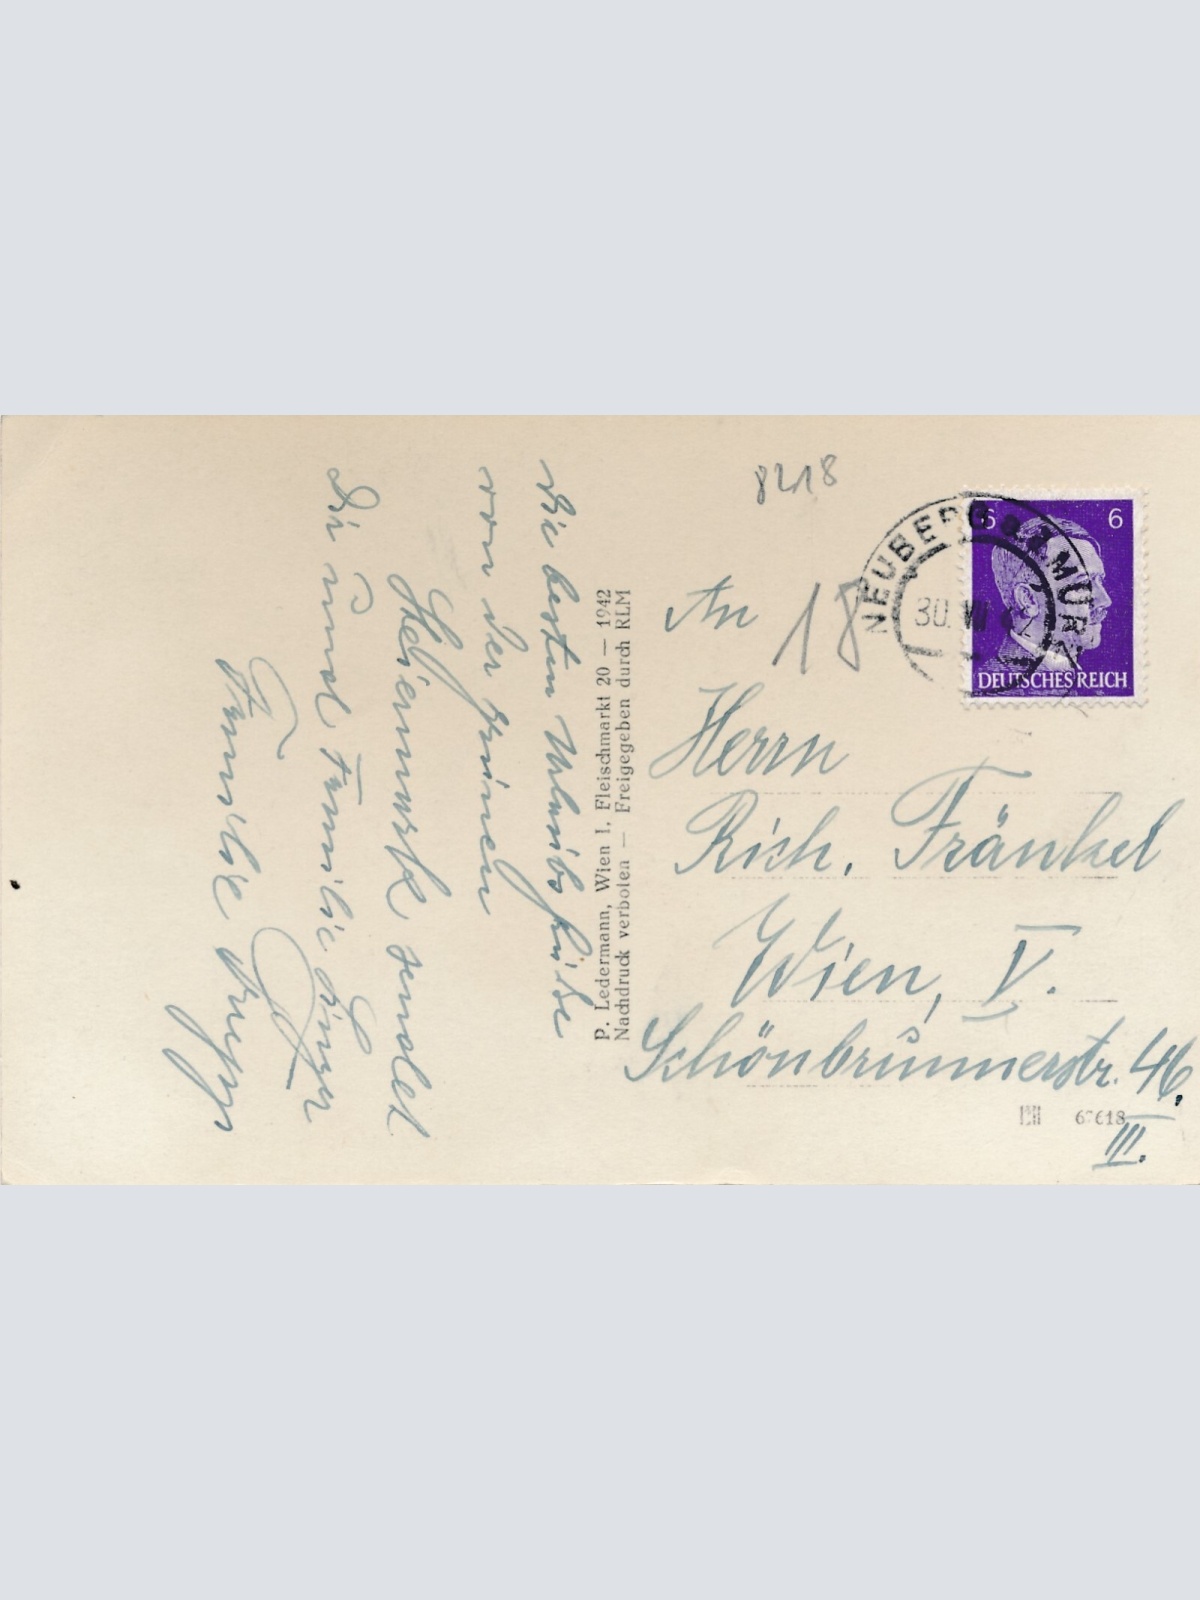 8218
6 6
DEUTSCHES REICH
NEUBERG a.d. MÜRZ
30. VII
18
An
Herrn
Rich. Fränkel
Wien, V.
Schönbrunnerstr. 46.
III.
P. Ledermann, Wien I, Fleischmarkt 20 — 1942
Nachdruck verboten — Freigegeben durch RLM
Die besten Urlaubsgrüße
von der grünen
Steiermark sendet
Dir und Familie
Familie